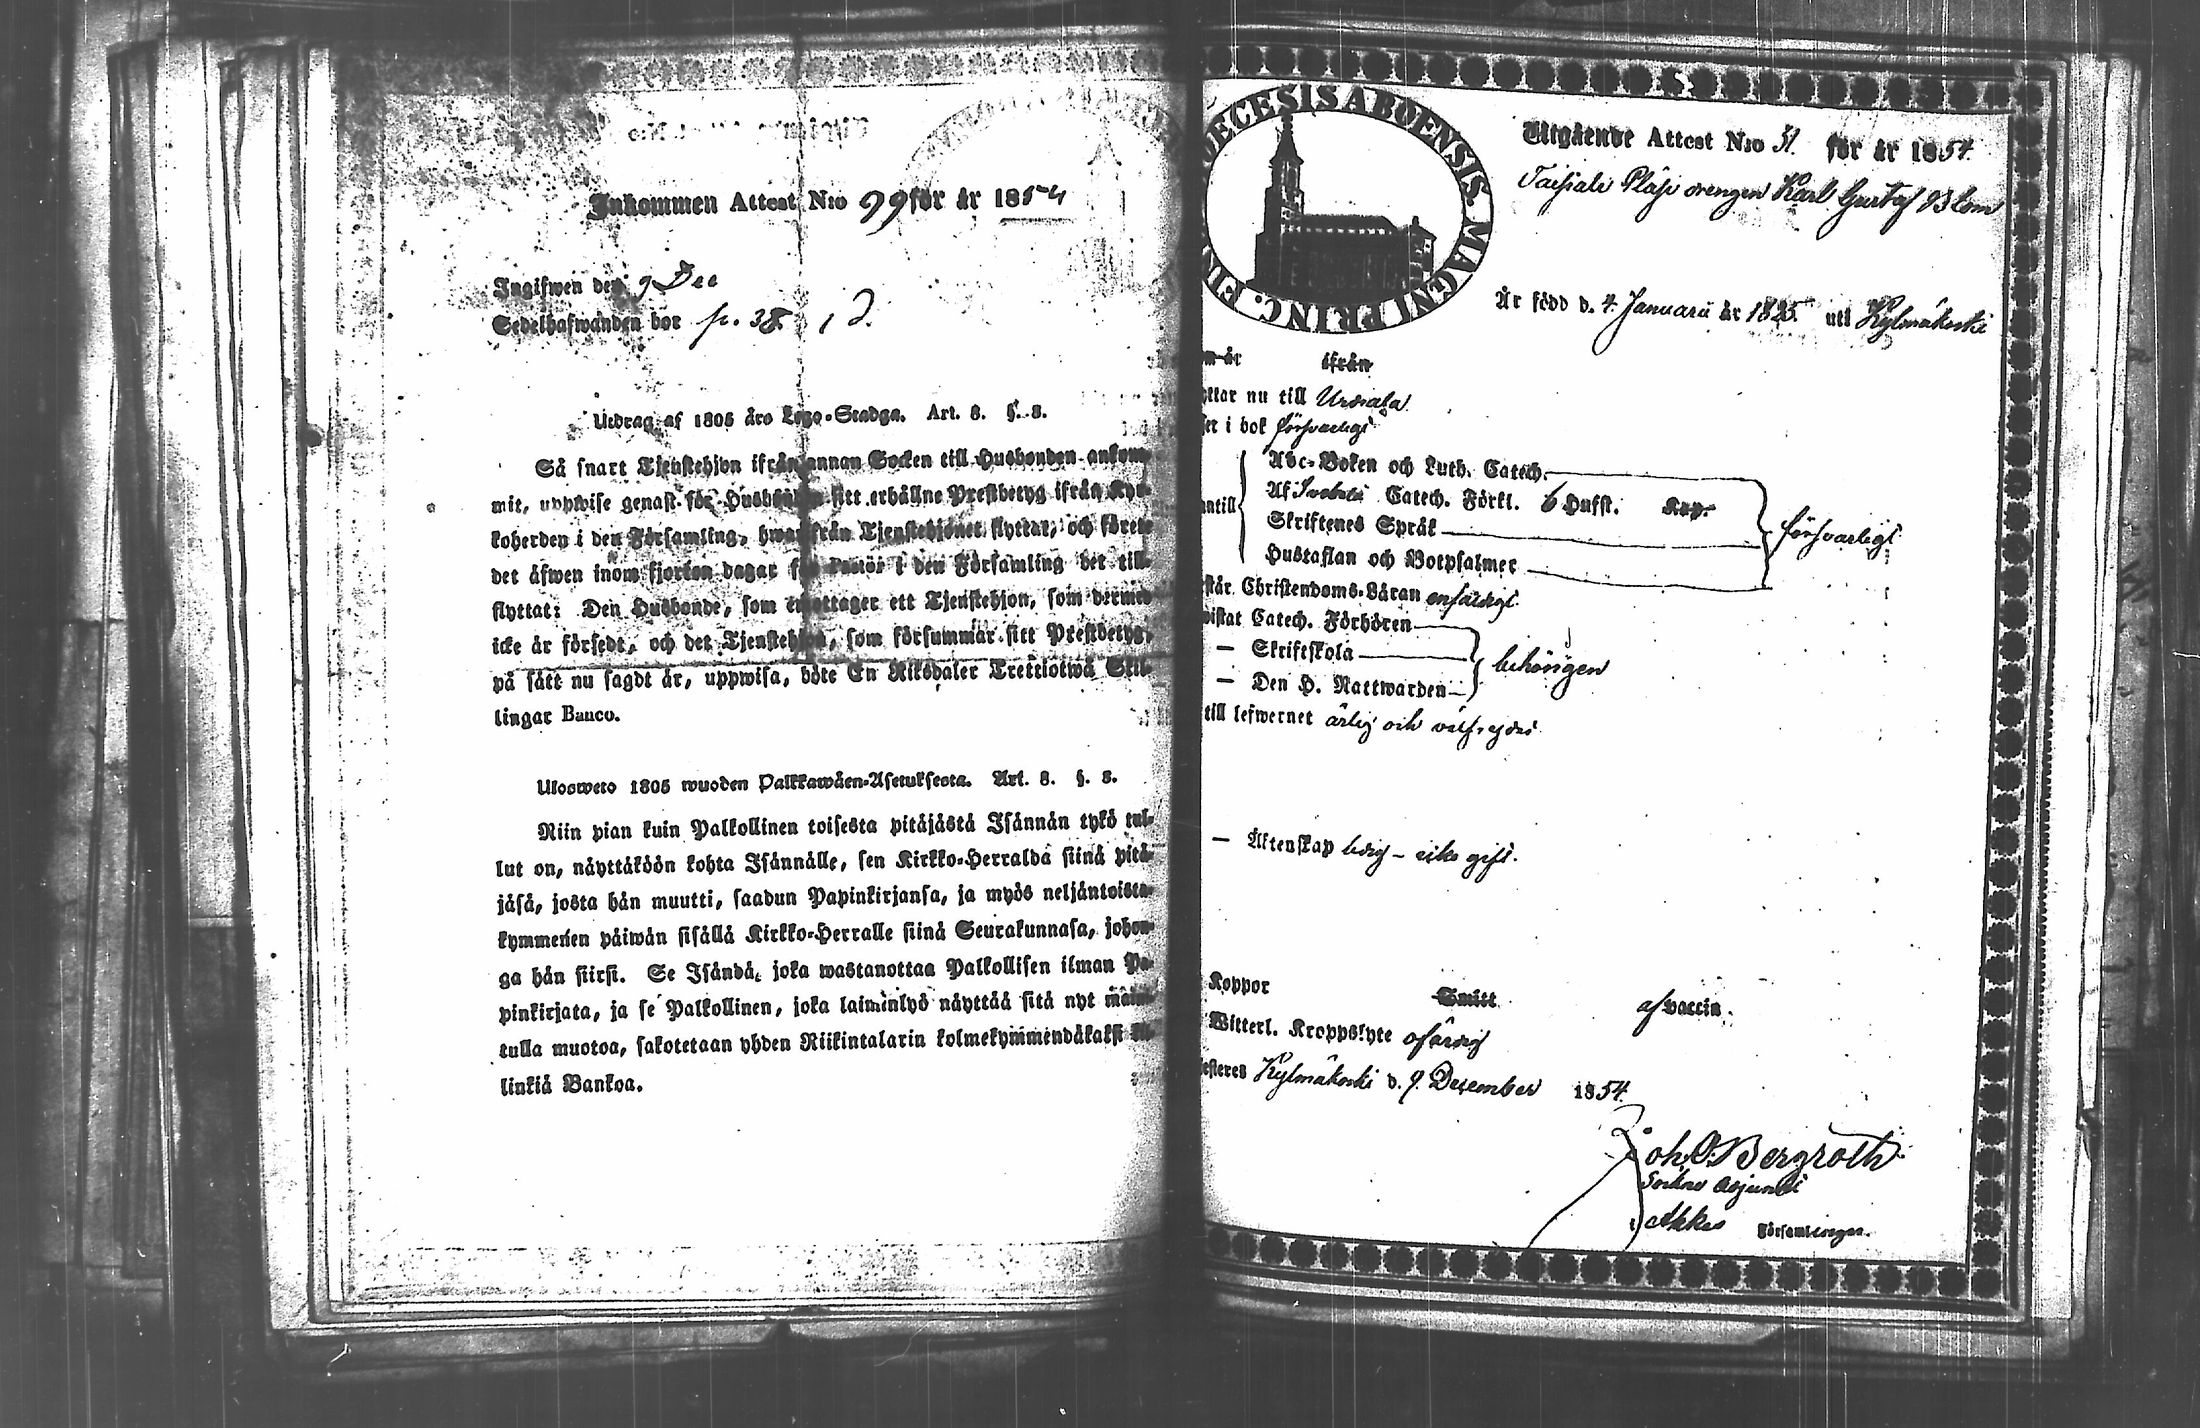 Inkommen Attest N:o 99 för år 1854
Ingifwen den 9 Dec
Sedelhafwanden bor p. 38.
Utdrag af 1805 års Lego-Stadga. Art. 8. §. 8.
Så snart Tjenstehjon ifrån annan Socken till Husbonden ankom-
mit, uppwise genast för Husbonden sitt erhållne Prestbetyg ifrån Kyr-
koherden i den Församling, hwarifrån Tjenstehjonet flyttat, och förete
det äfwen inom fjorton dagar för i den Församling det till-
flyttat: Den Husbonde, som emottager ett Tjenstehjon, som dermed
icke är försedt, och det Tjenstehjon, som försummar sitt Prestbetyg,
på sätt nu sagdt är, uppwisa, böte En Riksdaler Trettiotwå Skil-
lingar Banco.
Ulosweto 1805 wuoden Palkkawäen-Asetuksesta. Art. 8. §. 8.
Niin pian kuin Palkollinen toisesta pitäjästä Isännän tykö tul-
lut on, näyttäköön kohta Isännälle, sen Kirkko-Herralda siinä pitä-
jäsä, josta hän muutti, saadun Papinkirjansa, ja myös neljäntoista-
kymmenen päiwän sisällä Kirkko-Herralle siinä Seurakunnasa, johon-
ga hän siirsi. Se Isändä, joka wastanottaa Palkollisen ilman Pa-
pinkirjata, ja se Palkollinen, joka laiminlyö näyttää sitä nyt mainit-
tulla muotoa, sakotetaan yhden Riikintalarin kolmekymmendäkaksi kil-
linkiä Bankoa.
DIECESIS ABOENSIS. MAGNI PRINC. FIN
Utgående Attest N:o 51. för år 1854.
drengen Karl Gustaf Blom
Är född d. 4. Januarii år 1825. uti Kylmäkoski
år ifrån
ttar nu till Urdiala
er i bok försvarligt
Abc-Boken och Luth. Catech.
Af Svebelii Catech. Förkl. 6 Hufst. Kap.
antill Skriftenes Språk försvarligt
Hustaflan och Botpsalmer
står Christendoms-Läran enfaldigt
wistat Catech. Förhören
— Skriftskola behörigen
— Den H. Nattwarden
till lefwernet ärlig och välfrejdad
— Äktenskap ledig – icke gift.
Koppor Smitt af vaccin.
Witterl. Kroppslyte ofärdig
esteres Kylmäkoski d. 9. December 1854.
Joh. O. Bergroth
Sockne Adjunkt
i Akkas Församlingar.